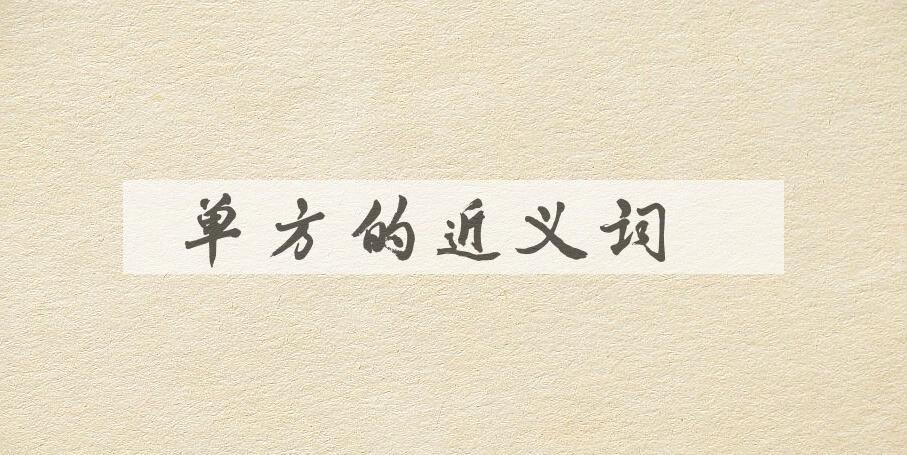 单方的近义词